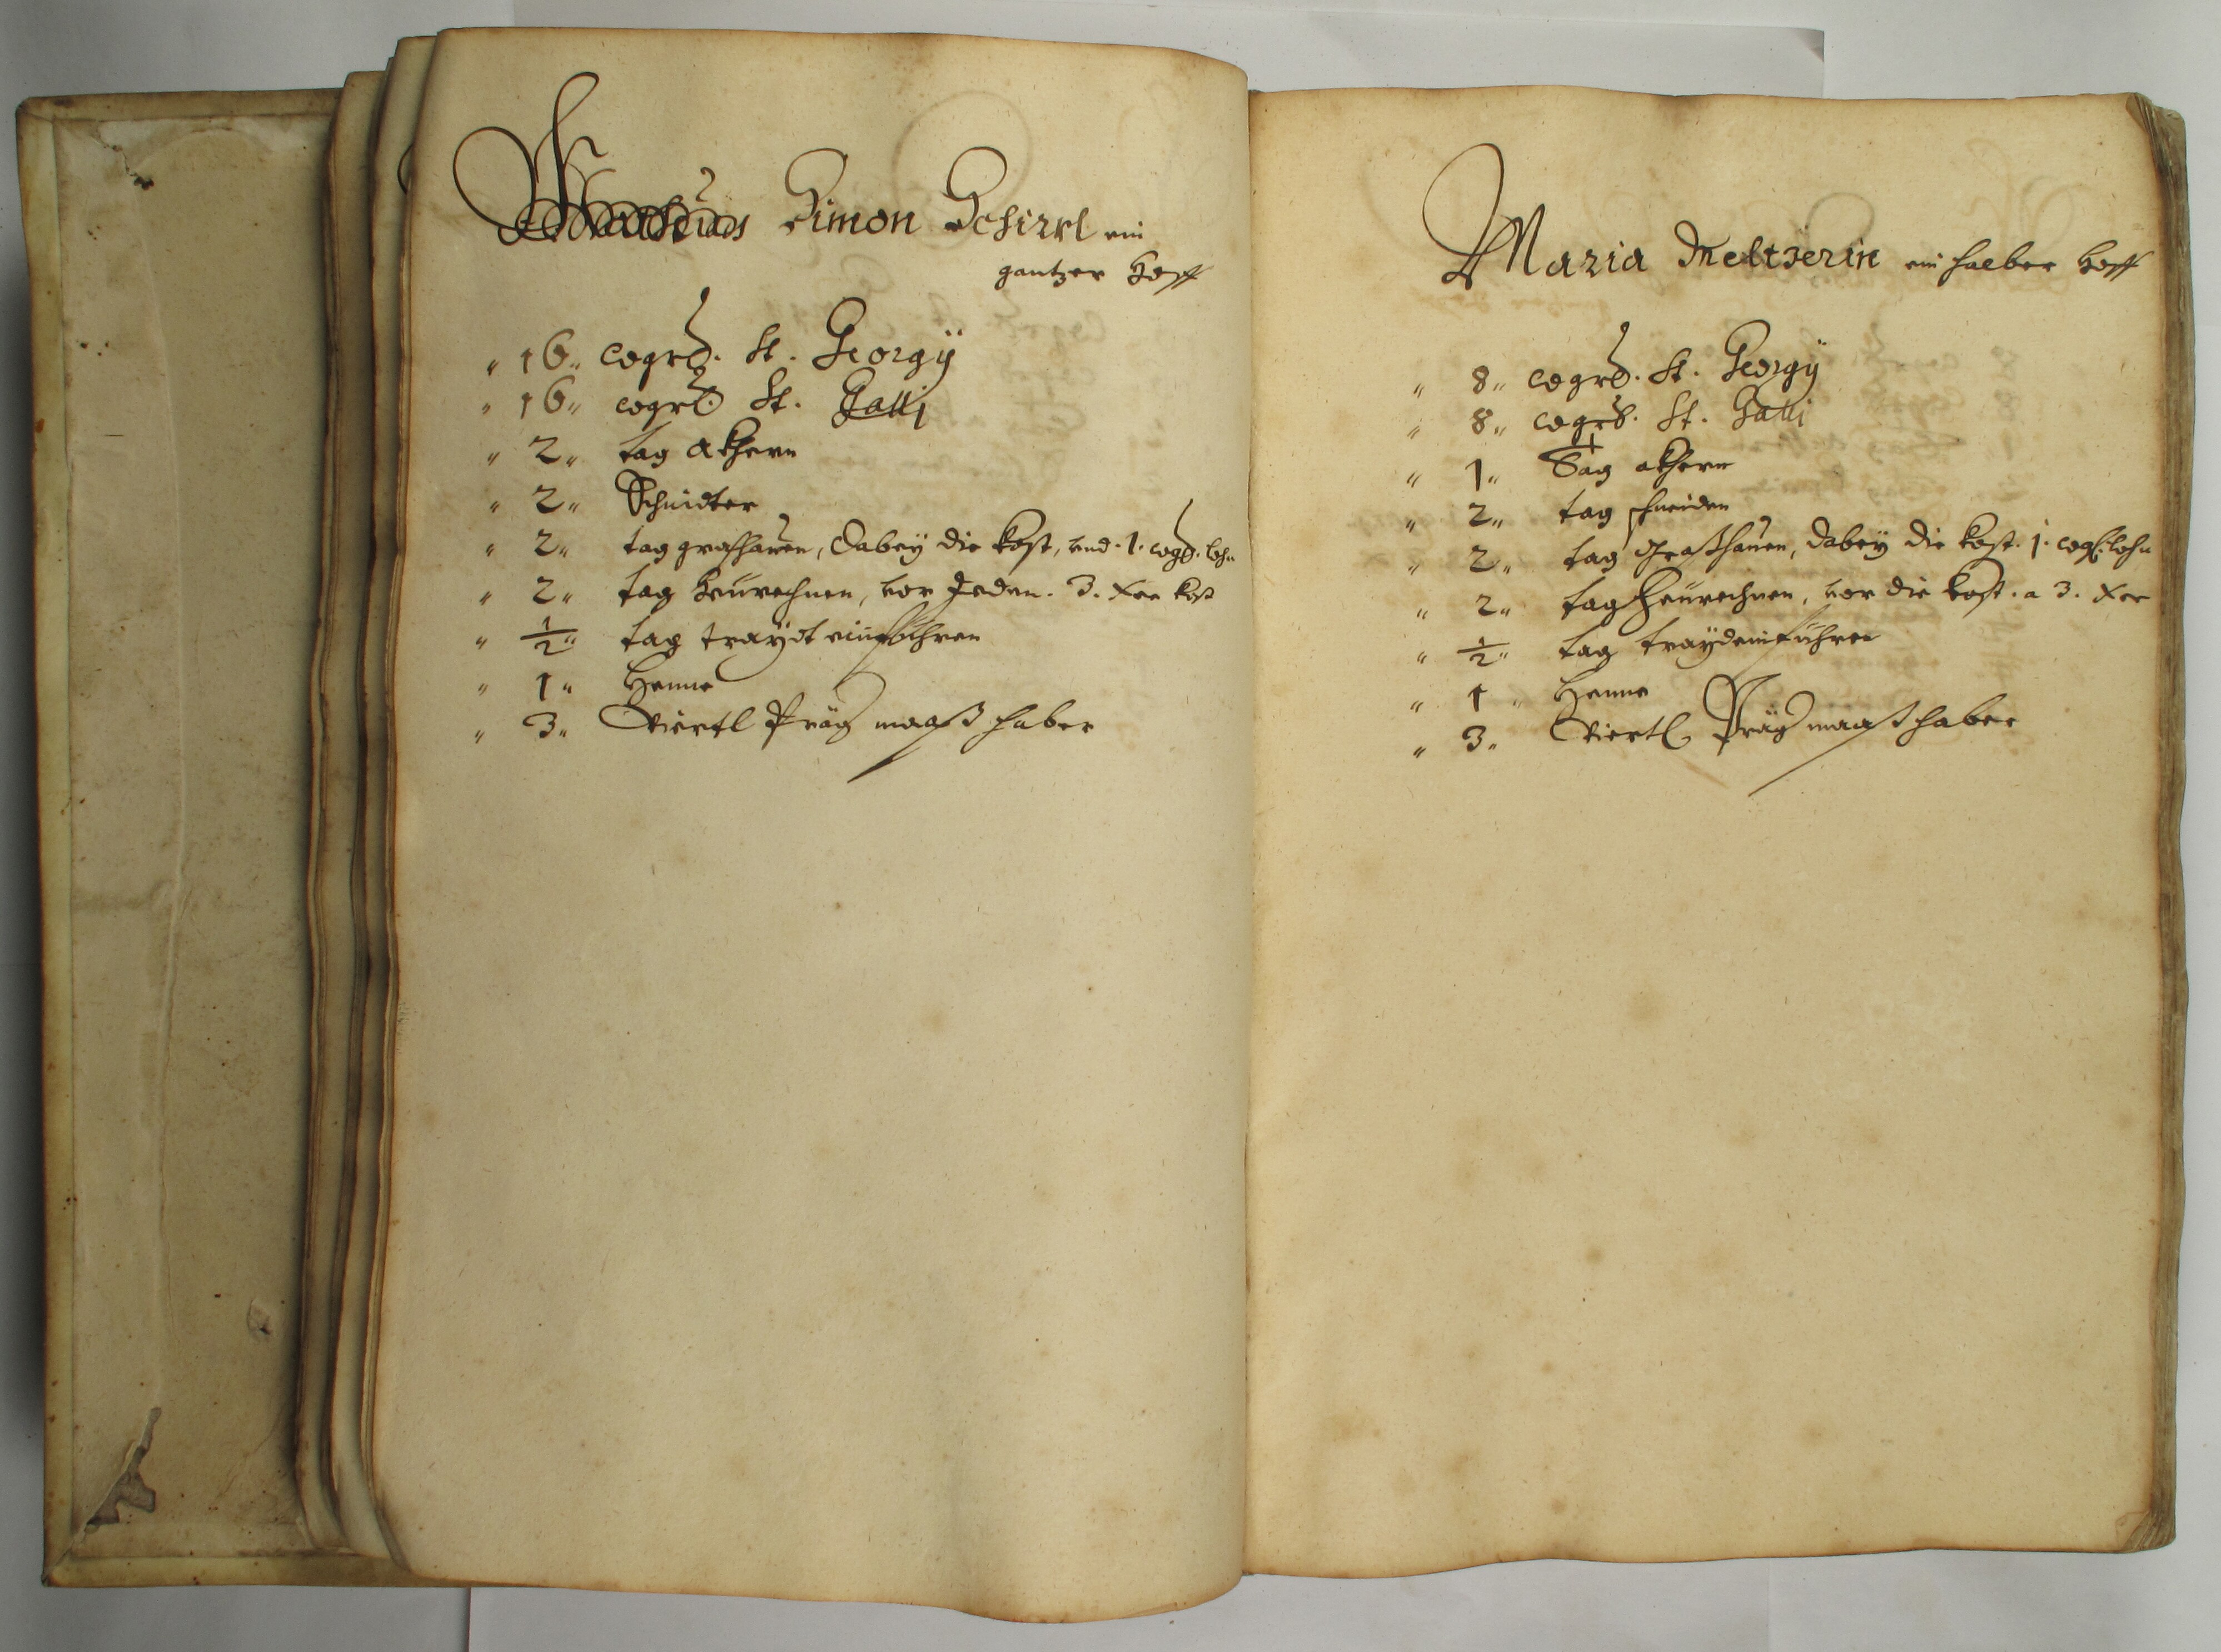 Simon Schirkl ein
gantzer Hoff
" 16 " wgrd. St. Georgÿ
" 16 " wgrd. St. Galli
" 2 " tag akhern
" 2 " Schnidter
" 2 " tag graßhauen, dabeÿ die kost, vnd .1. wgrd. lohn
" 2 " tag Heürechnen, vor Jeden .3. Xer kost
" 1/2 " tag traÿdt einführen
" 1 " Henne
" 3 " Viertl Präg maaß haber
Maria Meltzerin ein halber Hoff
" 8 " wgrd. St. Georgÿ
" 8 " wgrd. St. Galli
" 1 " Tag akhern
" 2 " tag schneiden
" 2 " tag Graßhauen, dabeÿ die kost .1. wgl. lohn
" 2 " tag Heürechnen, vor die kost . a 3. Xer
" 1/2 " tag traÿdeinführen
" 1 " Henne
" 3 " Viertl Präg maaß haber